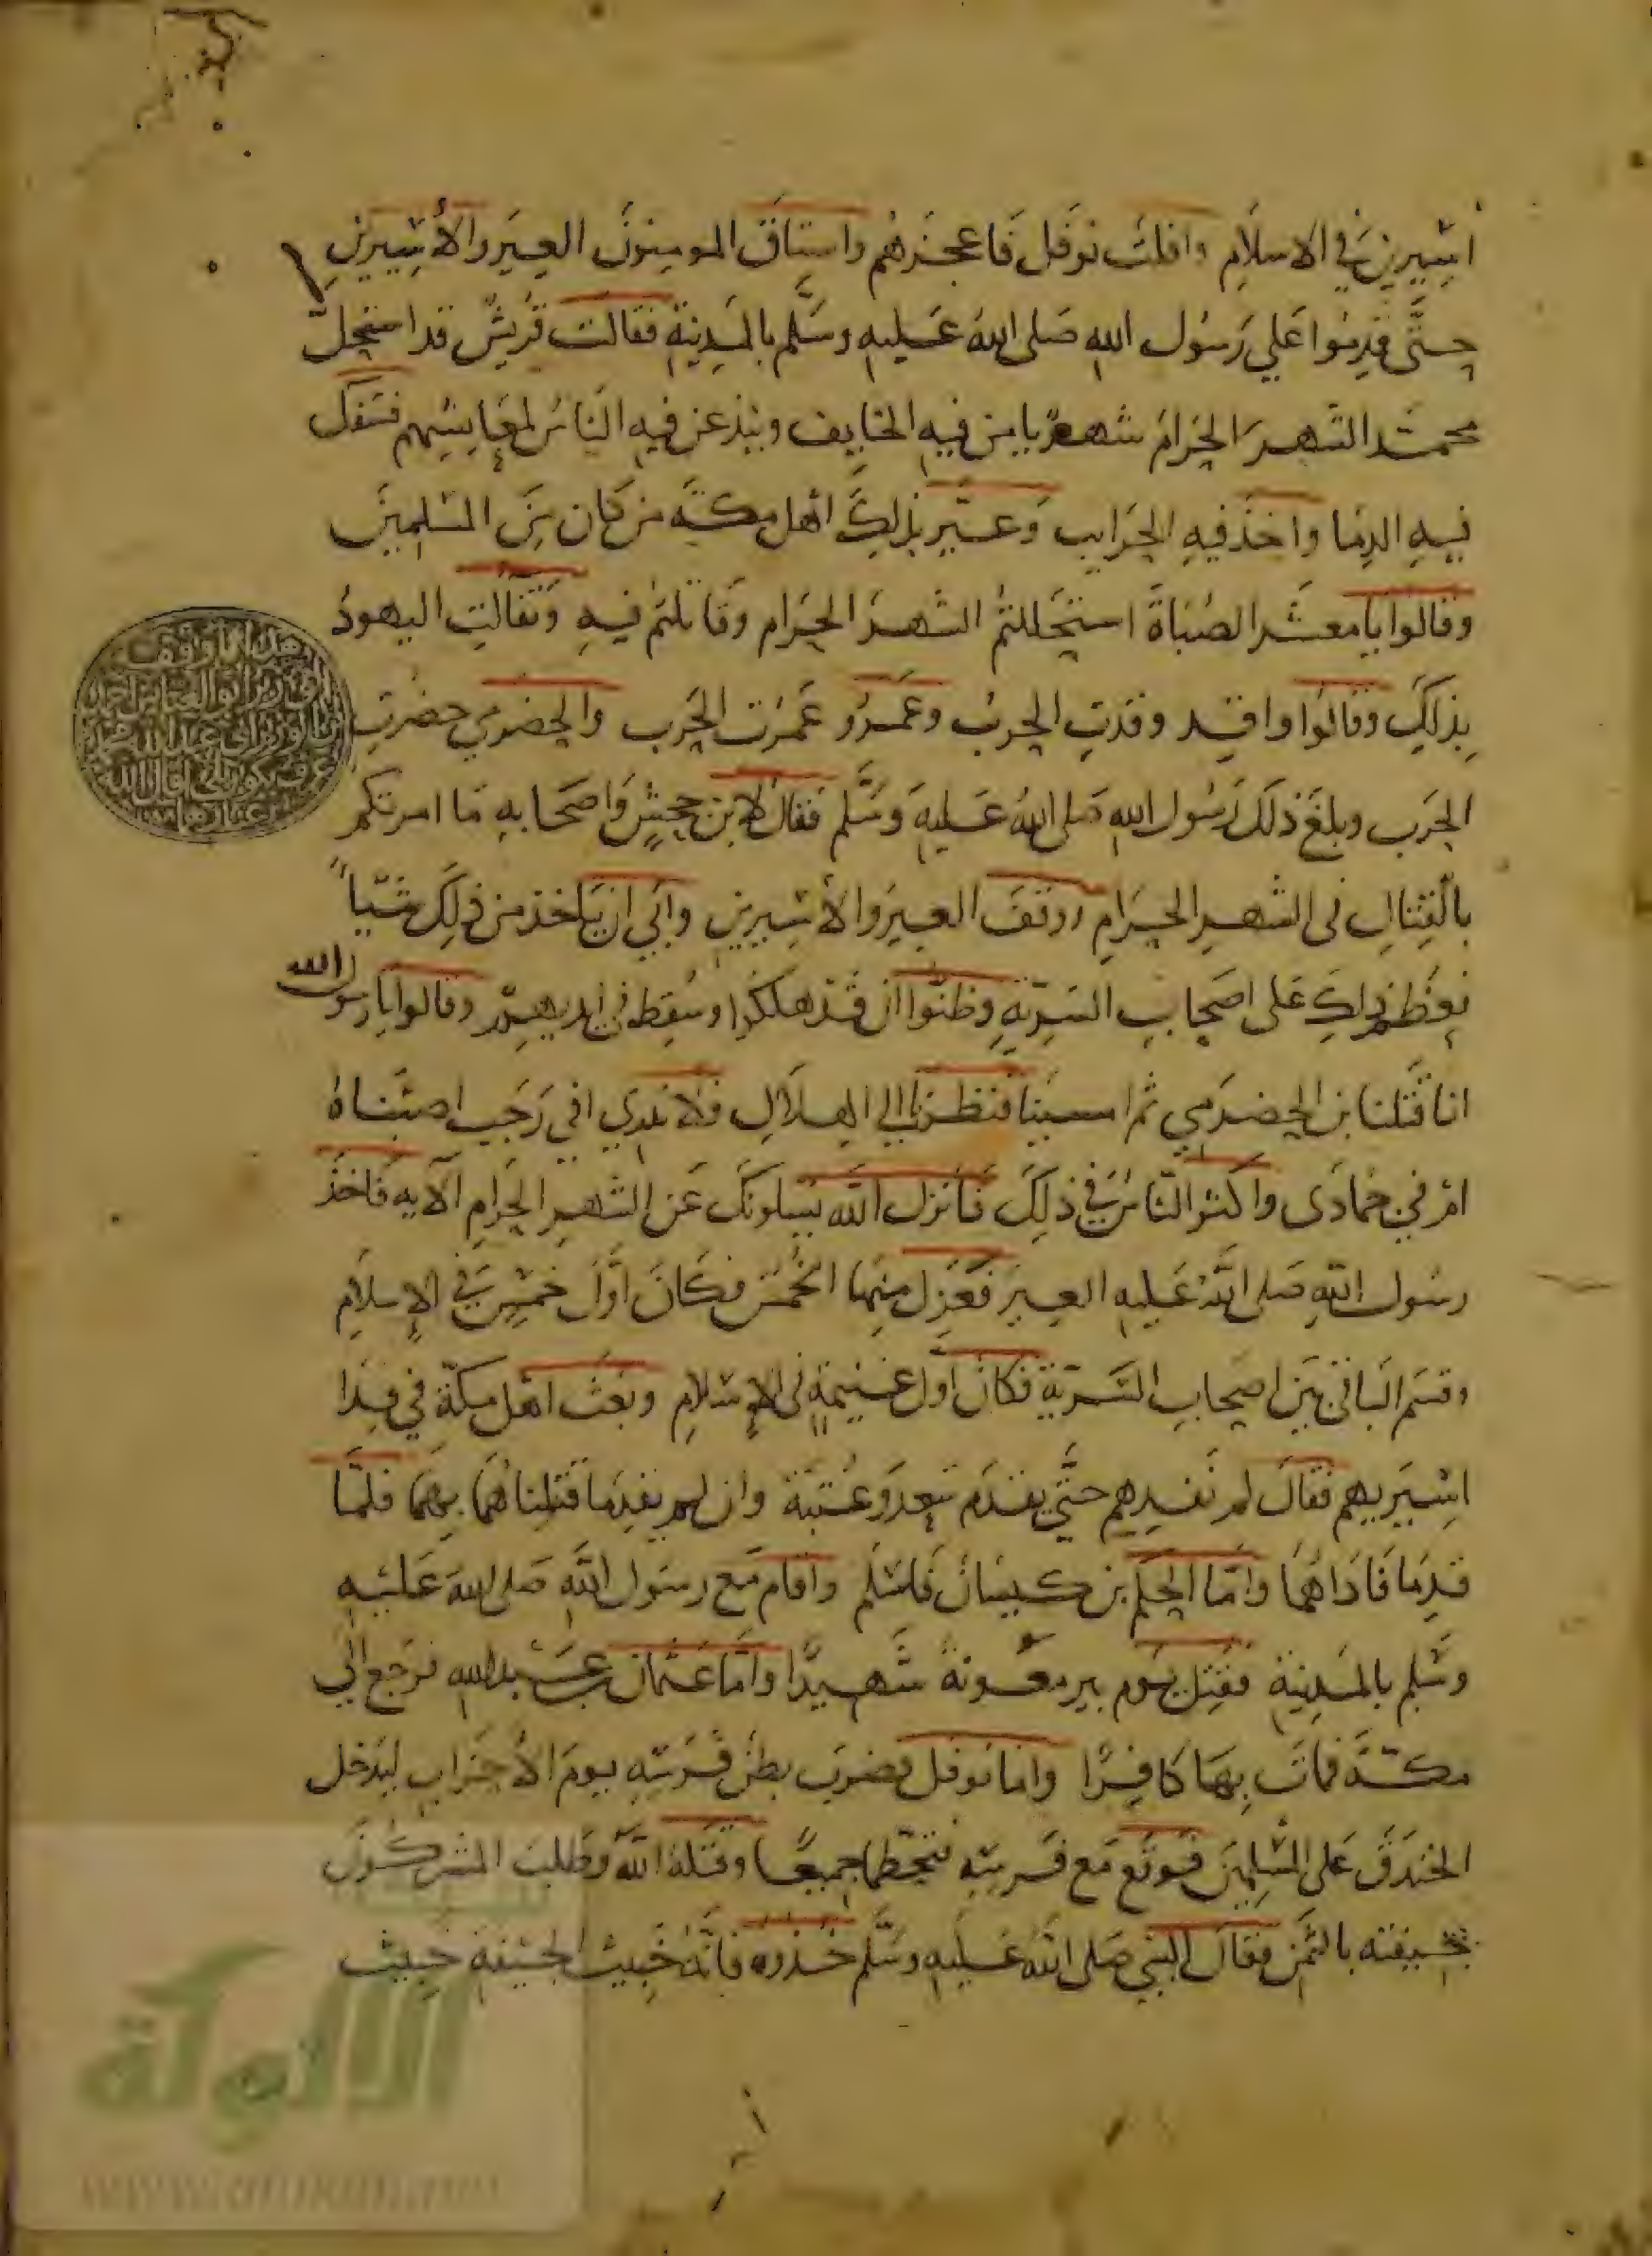 اسيرين في الاسلام وافلت نوفل فاعجزهم واستاق المومنون العير والأسيرين
حتى قدموا علي رسول الله صلى الله عليه وسلم بالمدينة فقالت قريش قد استحل
محمد الشهر الحرام شهر يامن فيه الخايف وبيذعر فيه الناس لمعايشهم فسفك
فيه الدما واخذ فيه الحرايب وعير بذلك اهل مكة من كان من المسلمين
وقالوا يا معشر الصباة استحللتم الشهر الحرام وقاتلتم فيه وتفالت اليهود
بذلك وقالوا واقد وقدت الحرب وعمرو عمرت الحرب والحضرمي حضرت
الحرب وبلغ ذلك رسول الله صلى الله عليه وسلم فقال لابن جحش واصحابه ما امرتكم
بالقتال فى الشهر الحرام ووقف العير والأسيرين وابي ان ياخذ من ذلك شيا
فعظم ذلك على اصحاب السرية وظنوا ان قد هلكوا وسقط في ايديهم وقالوا يا رسول الله
انا قتلنا بن الحضرمي ثم امسينا فنظرنا الي الهلال فلا ندري افي رجب اصبناه
ام في جمادى واكثر الناس في ذلك فانزل الله يسلونك عن الشهر الحرام الآيه فاخذ
رسول الله صلى الله عليه العير فعزل منها الخمس فكان اول خمس في الإسلام
وقسم الباقي بين اصحاب السرية فكان اول غنيمة فى الإسلام وبعث اهل مكة في فدا
اسيريهم فقال لم نفديهم حتى يقدم سعد وعتبة وان لم يقدما قتلناهما بهما فلما
قدما فاداهما واما الحكم بن كيسان فاسلم واقام مع رسول الله صلى الله عليه
وسلم بالمدينة فقتل يوم بير معونة شهيدا واما عثمان بن عبد الله فرجع الي
مكة فمات بها كافرا واما نوفل فضرب بطن فرسه يوم الأحزاب ليدخل
الخندق على المسلمين فوقع مع فرسه فتحطما جميعا وقتله الله وطلب المشركون
بجيفته بالثمن فقال النبي صلى الله عليه وسلم خذوه فانه خبيث الجيفة خبيث
الألوكة